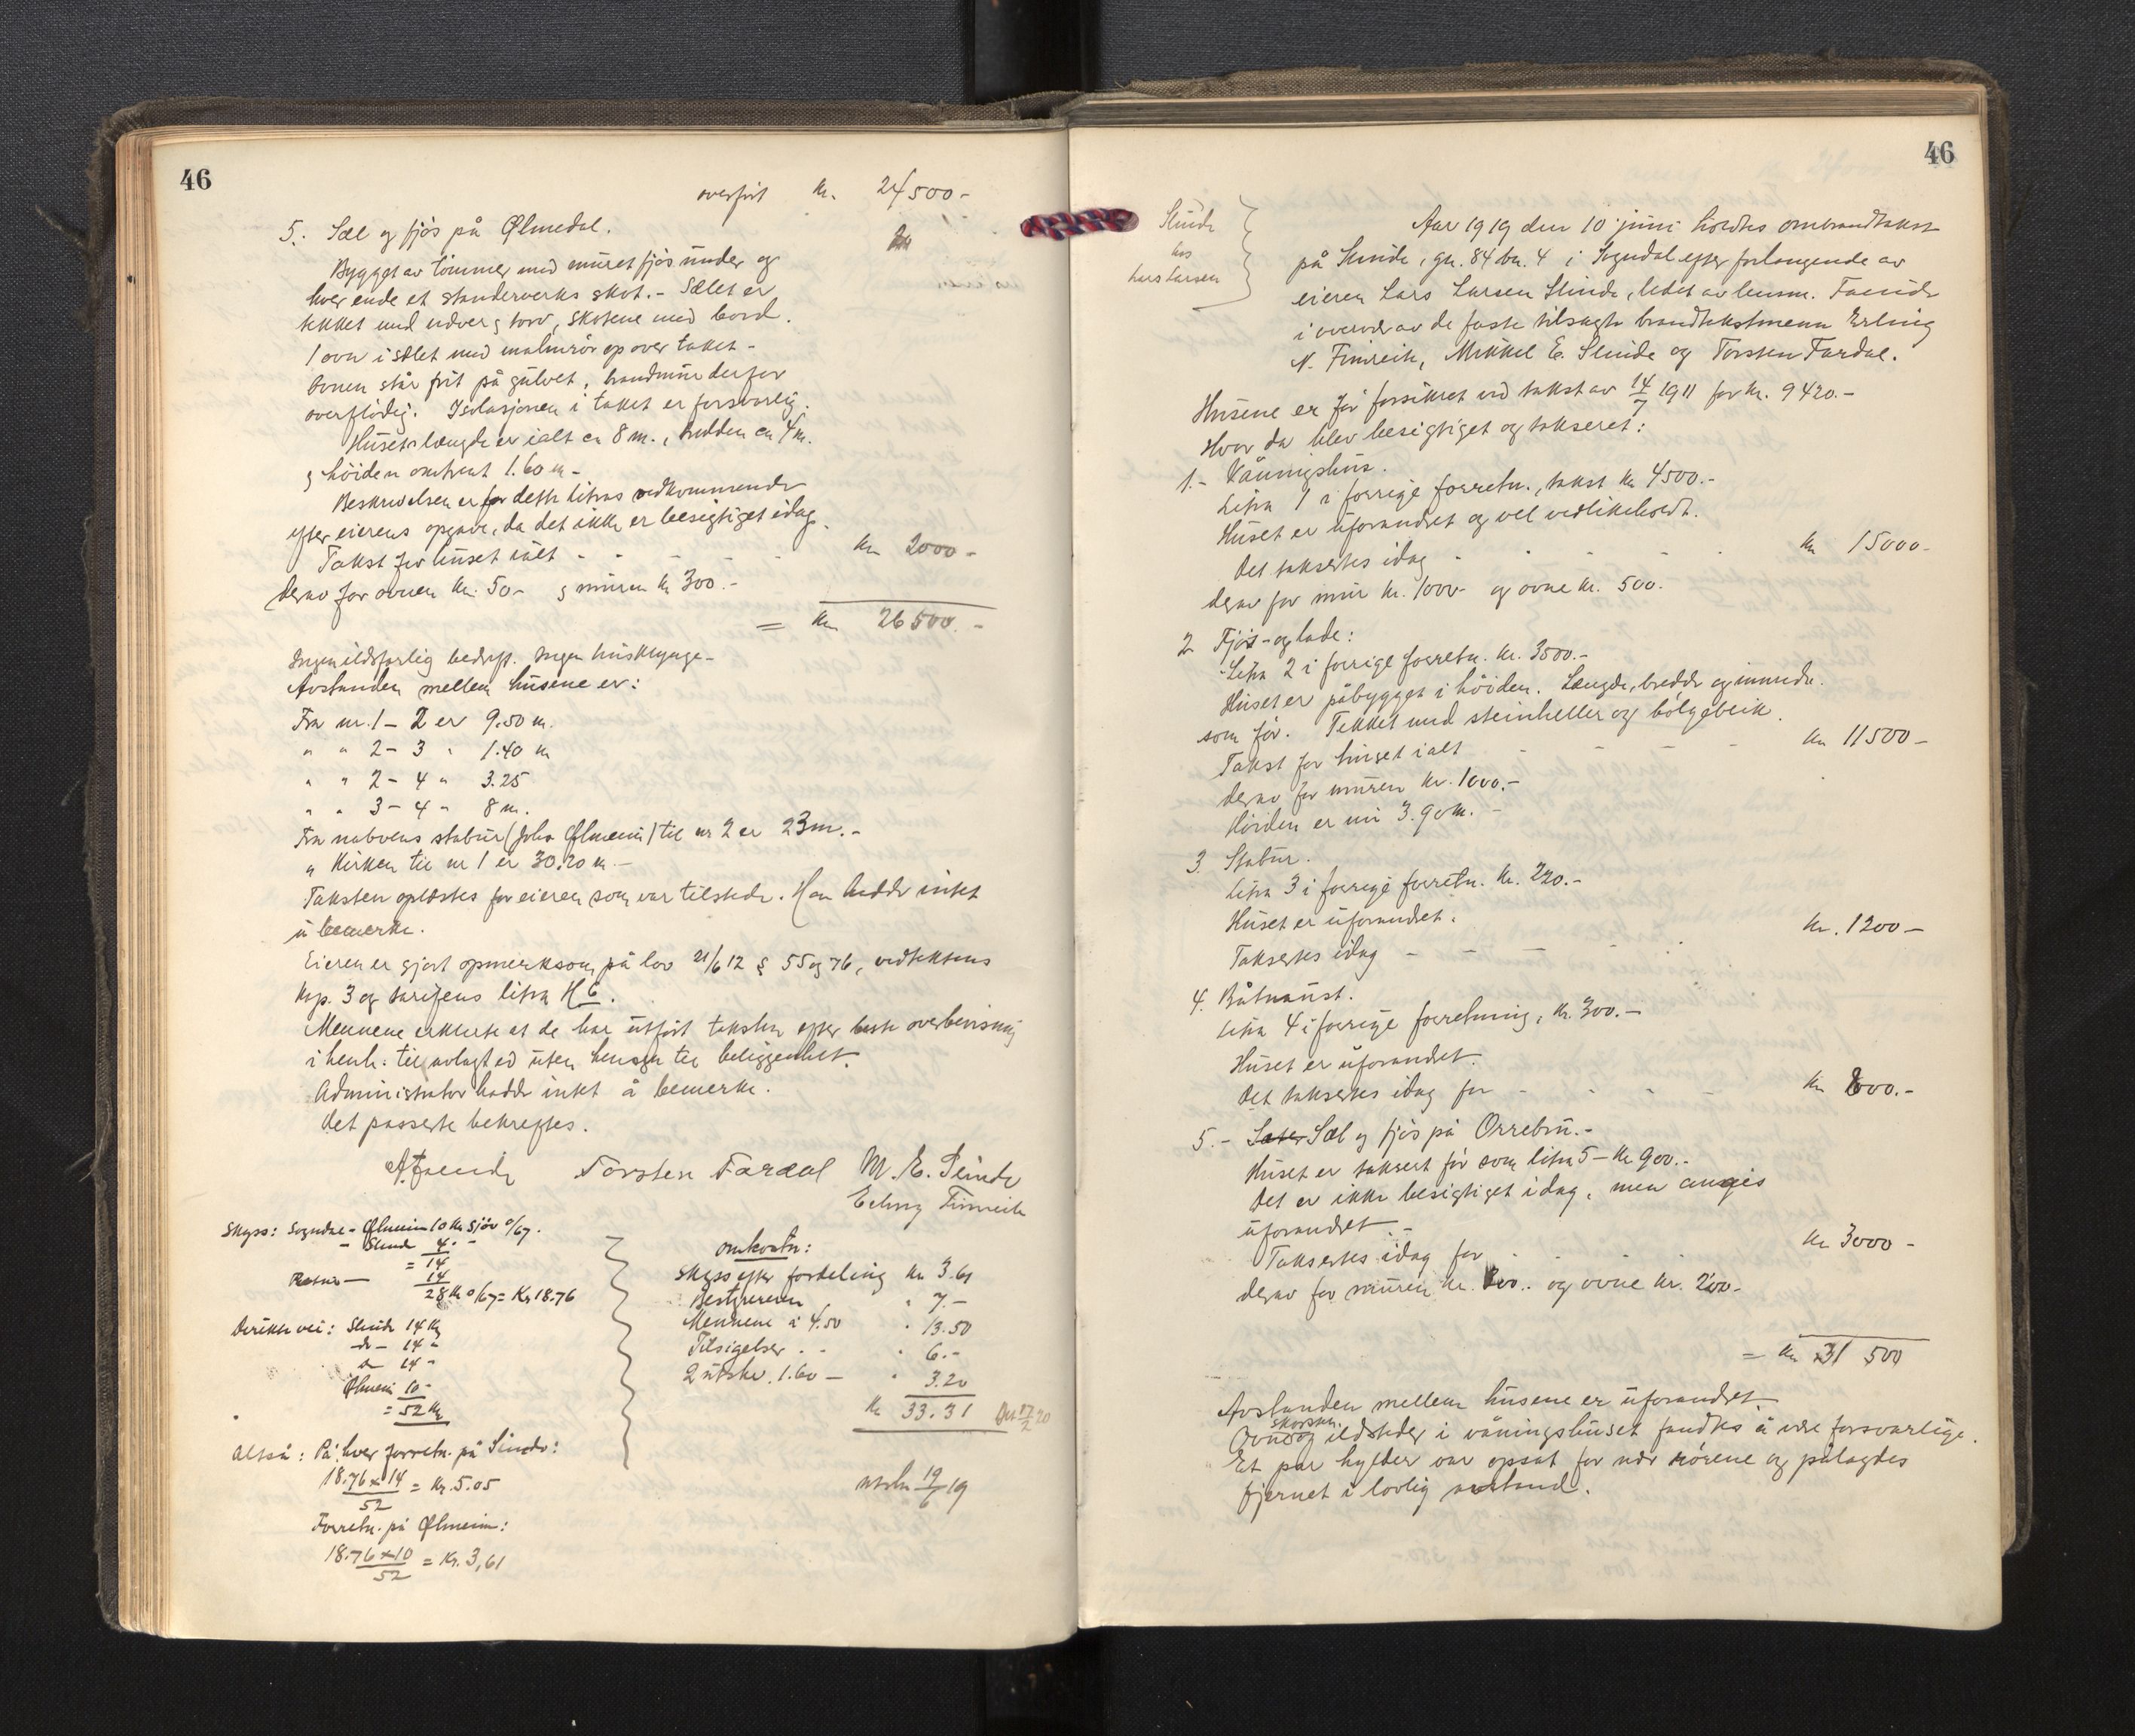 46
overført kr. 24500-
5. Sæl og fjøs på Ølmedal.
Bygget av tømmer med muret fjøs under og
hver ende et standerverks skot.- Sælet er
tekket med nœver og torv, skotene med bord.
1 ovn i sælet med malmrør op over taket -
Ovnen står frit på gulvet, brandmur derfor
overflødig. Isolasjonen i taket er forsvarlig.
Husets længde er ialt ca 8 m., bredden ca 4 m.
og høiden omtrent 1.60 m -
Beskrivelsen er for dette litras vedkommende
efter eierens opgave, da det ikke er besigtiget idag.
Takst for huset ialt - - - - - kr 2000 -
derav for ovnen kr. 50- og muren kr 300.-
= kr 26500.-
Ingen ildsfarlig bedrift. Ingen husklynge-
Avstanden mellem husene er:
Fra nr. 1 - 2 er 9.50 m.
" " 2 - 3 " 1.40 m
" " 2 - 4 " 3.25
" " 3 - 4 - 8 m.
Fra naboens stabur (Johs Ølmeim) til nr 2 er 23 m.-
" Kirken til nr 1 er 30.20 m.-
Taksten oplæstes for eieren som var tilstede. Han hadde intet
å bemerke.
Eieren er gjort opmerksom på lov 21/6 12 § 55 og 76, vedtektens
kap. 3 og tarifens litra H 6.
Mennene erklærte at de har utført taksten efter beste overbevisning
i henh. til avlagt ed uten hensyn til beliggenhet.
Administrator hadde intet å bemerke.
Det passerte bekreftes.
Torsten Fardal M. E. Slinde
Erling Fimreite
Skyss: Sogndal - Ølmeim 10 Km Sjøv 0/67.
- Slinde 4. -
= 14
Retur — 14
28 Km 0/67 = Kr 18.76
Direkte vei: Slinde 14 Km
do - 14 -
do 14 -
Ølmeim 10 -
= 52 Km
Altså: På hver forretn. på Slinde:
18.76 x 14 / 52 = Kr. 5.05
Forretn. på Ølmeim:
18.76 x 10 / 52 = Kr. 3,61
Omkostn:
Skyss efter fordeling kr 3.61
Bestyreren " 7.-
Mennene à 4.50 " 13.50
Tilsigelser - - " 6.-
2 utskr. 1.60 — " 3.20
kr 33.31
utskr 19/6 19
46
Slinde
hos
Lars Larsen
Aar 1919 den 10 juni holdtes ombrandtakst
på Slinde, gn. 84 bn. 4 i Sogndal efter forlangende av
eieren Lars Larsen Slinde, ledet av lensm. Fænde
i overvær av de faste tilsagte brandtakstmenn Erling
N. Fimreite, Mikkel E. Slinde og Torsten Fardal.
Husene er før forsikret ved takst av 14/7 1911 for kr. 9420.-
Hvor da blev besigtiget og taksert:
1.- Våningshus.
Litra 1 i forrige forretn., takst kr 4500.-
Huset er uforandret og vel vedlikeholdt.
Det taksertes idag - - - - - kr 15000-
derav for mur kr. 1000- og ovne kr. 500.
2 Fjøs - og lade:
Litra 2 i forrige forretn. kr. 3500.-
Huset er påbygget i høiden. Længde, bredde og innrede.
som før. Tekket med steinheller og bølgeblik.
Takst for huset ialt - - - - kr 11500 -
derav for muren kr. 1000.-
Høiden er nu 3.90 m. -
3. Stabur.
Litra 3 i forrige forretn. kr. 220.-
Huset er uforandret.
Taksertes idag - - - - kr. 1200 -
4. Båtnaust.
Litra 4 i forrige forretning, kr. 300.-
Huset er uforandret.
Det taksertes idag for - - - - kr 800.-
5.- Sæter Sæl og fjøs på Orrebru.-
Huset er taksert før som litra 5 - kr 900.-
Det er ikke besigtiget idag, men angis
uforandret. -
Taksertes idag for - - - - kr 3000 -
derav for muren kr. 300.. og ovne kr. 200-
= kr 31 500
Avstanden mellem husene er uforandret.
skorsten.
Ovne og ildsteder i våningshuset fandtes å være forsvarlige.
Et par hylder var opsat for nær rørene og pålagdes
fjernet i lovlig avstand.